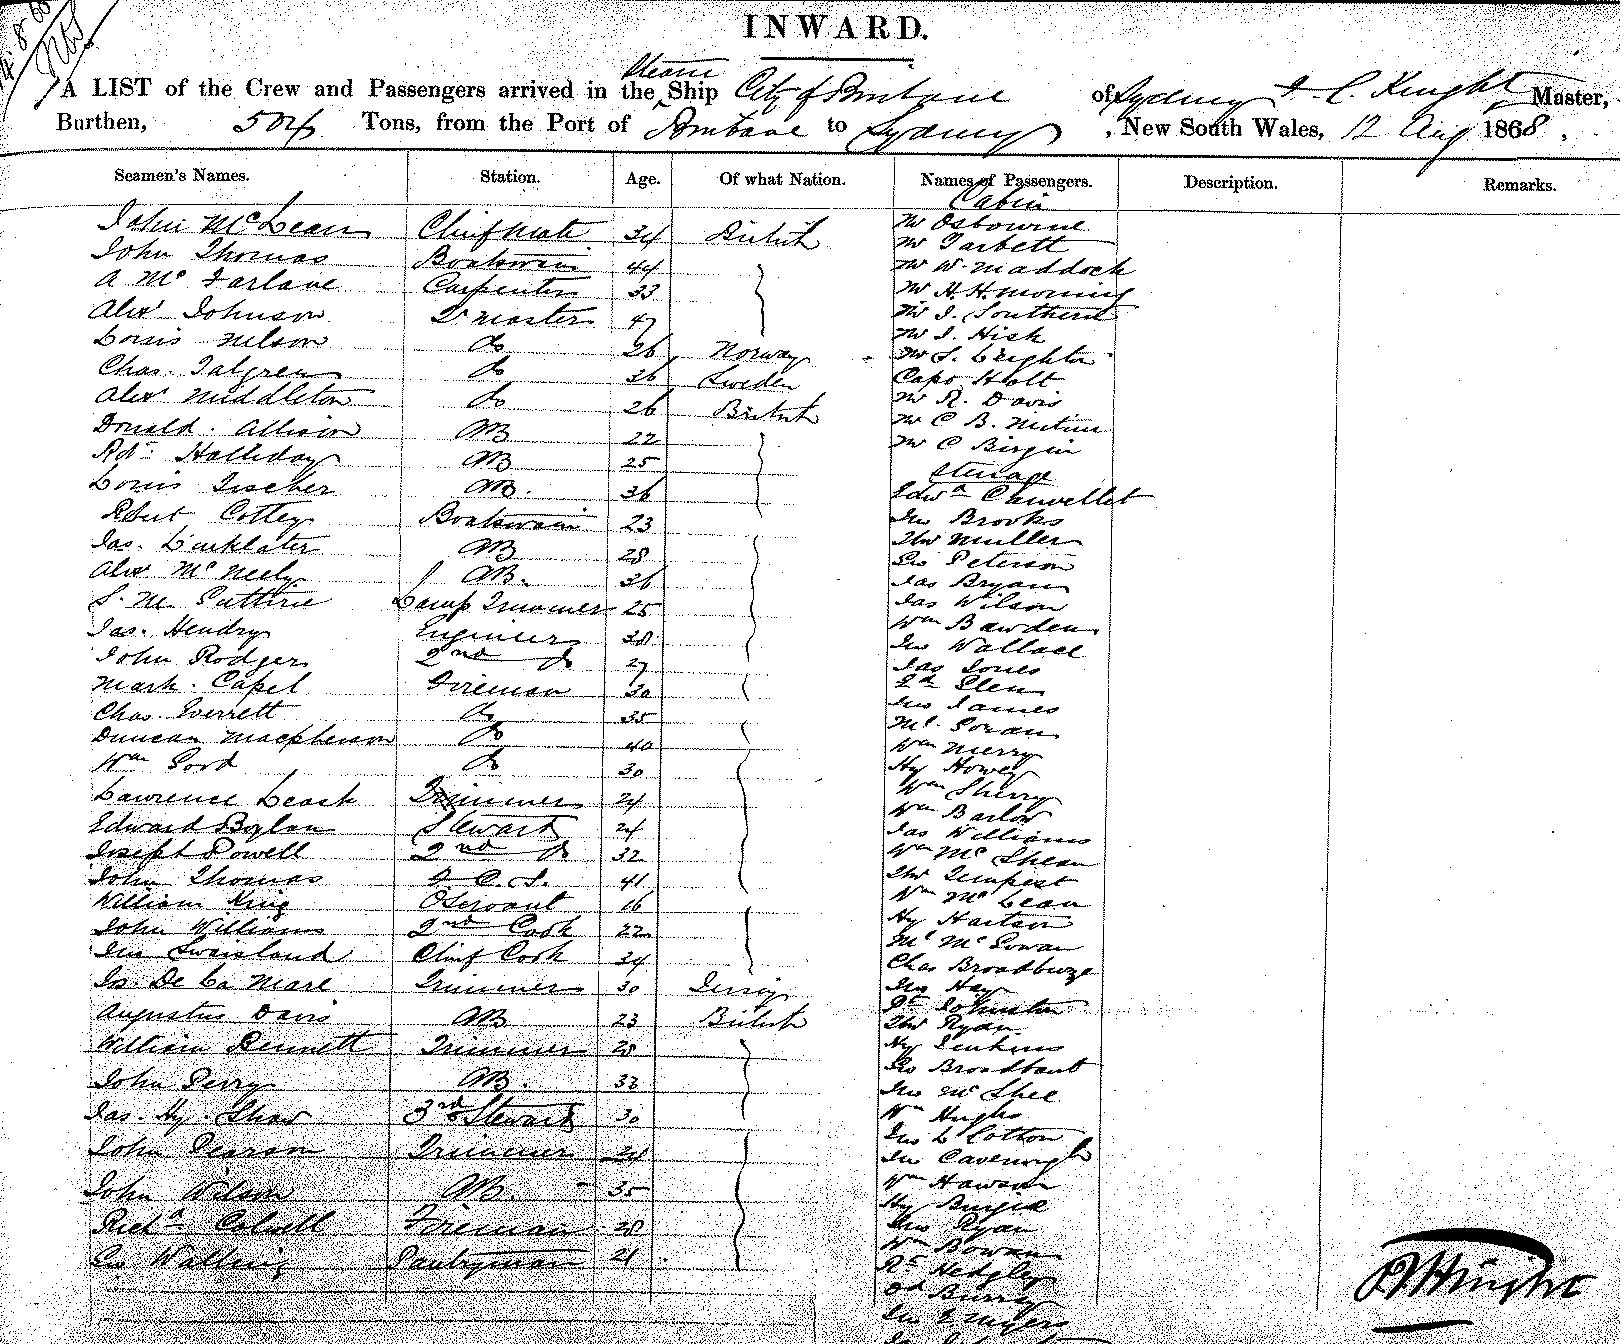 INWARD.
A LIST of the Crew and Passengers arrived in the Steam Ship City of Brisbane of Sydney Knight Master,
Burthen, 504 Tons, from the Port of Brisbane to Sydney, New South Wales, 12 Aug 1868.
Seamen's Names. Station. Age. Of what Nation. Names of Passengers. Description. Remarks.
John McLean Chief Mate 34 British
John Thomas Boatswain 44
A McFarlane Carpenter 33
Alexr Johnson Qr master 47
Louis Nelson do 26 Norway
Chas. Talgren do 36 Sweden
Alexr Middleton do 26 British
Donald Allison AB 22
Robt Halliday AB 25
Louis Fischer AB. 36
Robert Cottey Boatswain 23
Jas. Linklater AB 28
Alexr McNeely AB. 36
S. M. Guthrie Lamp Trimmer 25
Jas. Hendry Engineer 38
John Rodger 2nd do 27
Mark Capel Fireman 30
Chas Everrett do 35
Duncan Macpherson do 40
Wm Ford do 30
Lawrence Leask Trimmer 24
Edward Boylan Steward 24
Joseph Powell 2nd do 32
John Thomas 41
William King Servant 16
John Williams 2nd Cook 22
Jno Swaisland Chief Cook 24
Jos. De La Mare Trimmer 30 Jersey
Augustus Davis AB 23 British
William Bennett Trimmer 28
John Perry AB. 32
Jas. Hy. Shaw 3rd Steward 30
John Pearson Trimmer 28
John Wilson AB. 35
Richd Colwell Fireman 28
Walling Pantryman 21
Cabin
Mr Osbourne
Mr Tarbett
Mr W. Maddock
Mr H. H. Morning
Mr J. Southern
Mr J. Hick
Mr S. Leighton
Capt Holt
Mr R. Davis
Mr C B.
Mr C Birgin
Steerage
Edwd Chauvellet
Jno Brooks
Thos Muller
Geo Peterson
Jas Bryan
Jas Wilson
Wm Bawden
Jno Wallace
Jas Jones
Glen
Jno James
Wm Merry
Hy Howey
Wm Sherry
Wm Barlow
Jas Williams
Wm McShean
Thos Tempest
Wm McLean
Hy Hartson
Mr McGowan
Chas Broadbridge
Jno Hay
Johnston
Thos Ryan
Hy Jenkins
Geo Broadbent
Jno McGhee
Wm Hughs
Jno L Cotton
Jno Cavenough
Wm Hawson
Hy
Jno Ryan
Wm Bowan
Hedgley
Burns
Jno Myers
Knight